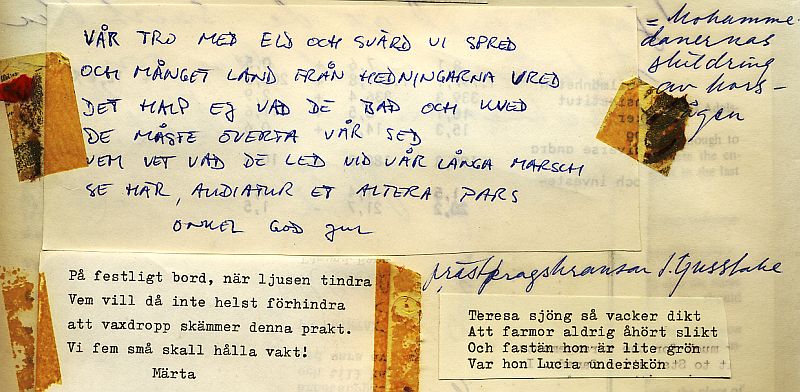 VÅR TRO MED ELD OCH SVÄRD VI SPRED
OCH MÅNGET LAND FRÅN HEDNINGARNA VRED
DET HALP EJ VAD DE BAD OCH KVED
DE MÅSTE ÖVERTA VÅR SED
VEM VET VAD DE LED VID VÅR LÅNGA MARSCH
SE HÄR, AUDIATUR ET ALTERA PARS
ONKEL GOD JUL
= Mohamme
danernas
skildring
av kors-
tågen
På festligt bord, när ljusen tindra
Vem vill då inte helst förhindra
att vaxdropp skämmer denna prakt.
Vi fem små skall hålla vakt!
Märta
ljusstake
Teresa sjöng så vacker dikt
Att farmor aldrig åhört slikt
Och fastän hon är lite grön
Var hon Lucia underskön